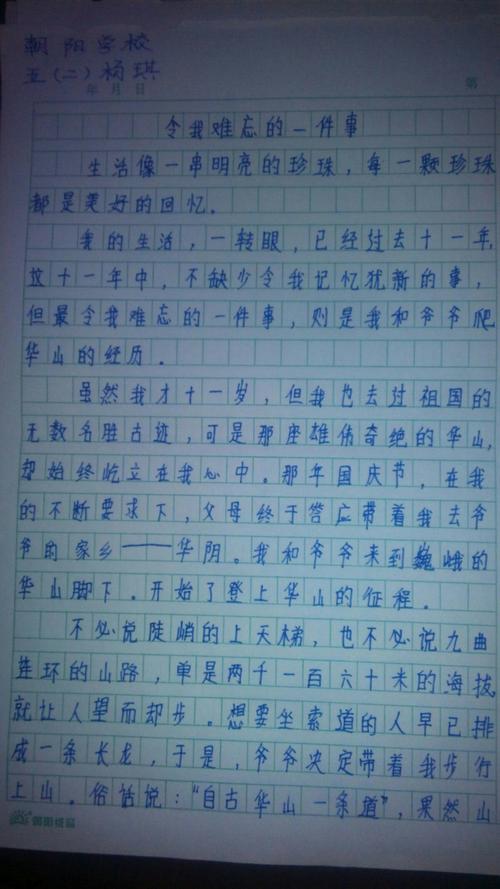 朝阳学校
五(二)杨琪
年 月 日
第
令我难忘的一件事
生活像一串明亮的珍珠，每一颗珍珠
都是美好的回忆。
我的生活，一转眼，已经过去十一年，
这十一年中，不缺少令我记忆犹新的事，
但最令我难忘的一件事，则是我和爷爷爬
华山的经历．
虽然我才十一岁，但我也去过祖国的
无数名胜古迹，可是那座雄伟奇绝的华山，
却始终屹立在我心中。那年国庆节，在我
的不断要求下，父母终于答应带着我去爷
爷的家乡——华阴。我和爷爷来到巍峨的
华山脚下．开始了登上华山的征程．
不必说陡峭的上天梯，也不必说九曲
连环的山路，单是两千一百六十米的海拔
就让人望而却步。想要坐索道的人早已排
成一条长龙，于是，爷爷决定带着我步行
上山。俗话说："自古华山一条道"，果然山